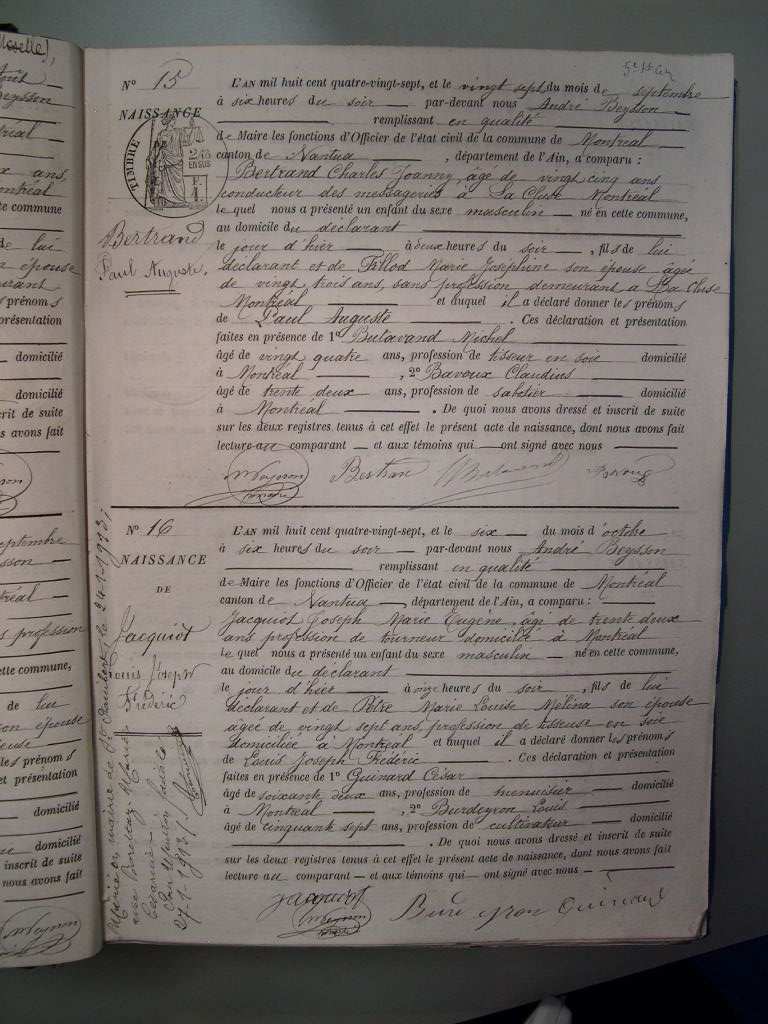 N° 15
NAISSANCE
TIMBRE
Bertrand
Paul Auguste.
L'AN mil huit cent quatre-vingt-sept, et le vingt sept du mois de septembre
à six heures du soir par-devant nous André Beysson
remplissant en qualité
de Maire les fonctions d'Officier de l'état civil de la commune de Montréal
canton de Nantua, département de l'Ain, a comparu :
Bertrand Charles Joanny, âgé de vingt cinq ans
conducteur des messageries à La Cluse Montréal
lequel nous a présenté un enfant du sexe masculin né en cette commune,
au domicile du déclarant
le jour d'hier à deux heures du soir, fils de lui
déclarant et de Fillod Marie Joséphine son épouse âgée
de vingt trois ans, sans profession demeurant à La Cluse
Montréal et auquel il a déclaré donner les prénoms
de Paul Auguste. Ces déclaration et présentation
faites en présence de 1° Butavand Michel
âgé de vingt quatre ans, profession de tisseur en soie domicilié
à Montréal, 2° Bavoux Claudius
âgé de trente deux ans, profession de sabotier domicilié
à Montréal. De quoi nous avons dressé et inscrit de suite
sur les deux registres tenus à cet effet le présent acte de naissance, dont nous avons fait
lecture au comparant et aux témoins qui ont signé avec nous
N° 16
NAISSANCE
DE
Jacquiot
Louis Joseph
Frédéric
L'AN mil huit cent quatre-vingt-sept, et le six du mois d'octobre
à six heures du soir par-devant nous André Beysson
remplissant en qualité
de Maire les fonctions d'Officier de l'état civil de la commune de Montréal
canton de Nantua, département de l'Ain, a comparu :
Jacquiot Joseph Marie Eugène, âgé de trente deux
ans profession de tourneur domicilié à Montréal
lequel nous a présenté un enfant du sexe masculin né en cette commune,
au domicile du déclarant
le jour d'hier à onze heures du soir, fils de lui
déclarant et de Marie Louise Mélina son épouse
âgée de vingt sept ans, profession de tisseuse en soie
domiciliée à Montréal et auquel il a déclaré donner les prénoms
de Louis Joseph Frédéric. Ces déclaration et présentation
faites en présence de 1° Guinard César
âgé de soixante deux ans, profession de menuisier domicilié
à Montréal, 2° Burdeyron Louis
âgé de cinquante sept ans, profession de cultivateur domicilié
. De quoi nous avons dressé et inscrit de suite
sur les deux registres tenus à cet effet le présent acte de naissance, dont nous avons fait
lecture au comparant et aux témoins qui ont signé avec nous
Jacquiot
Burdeyron Guinard